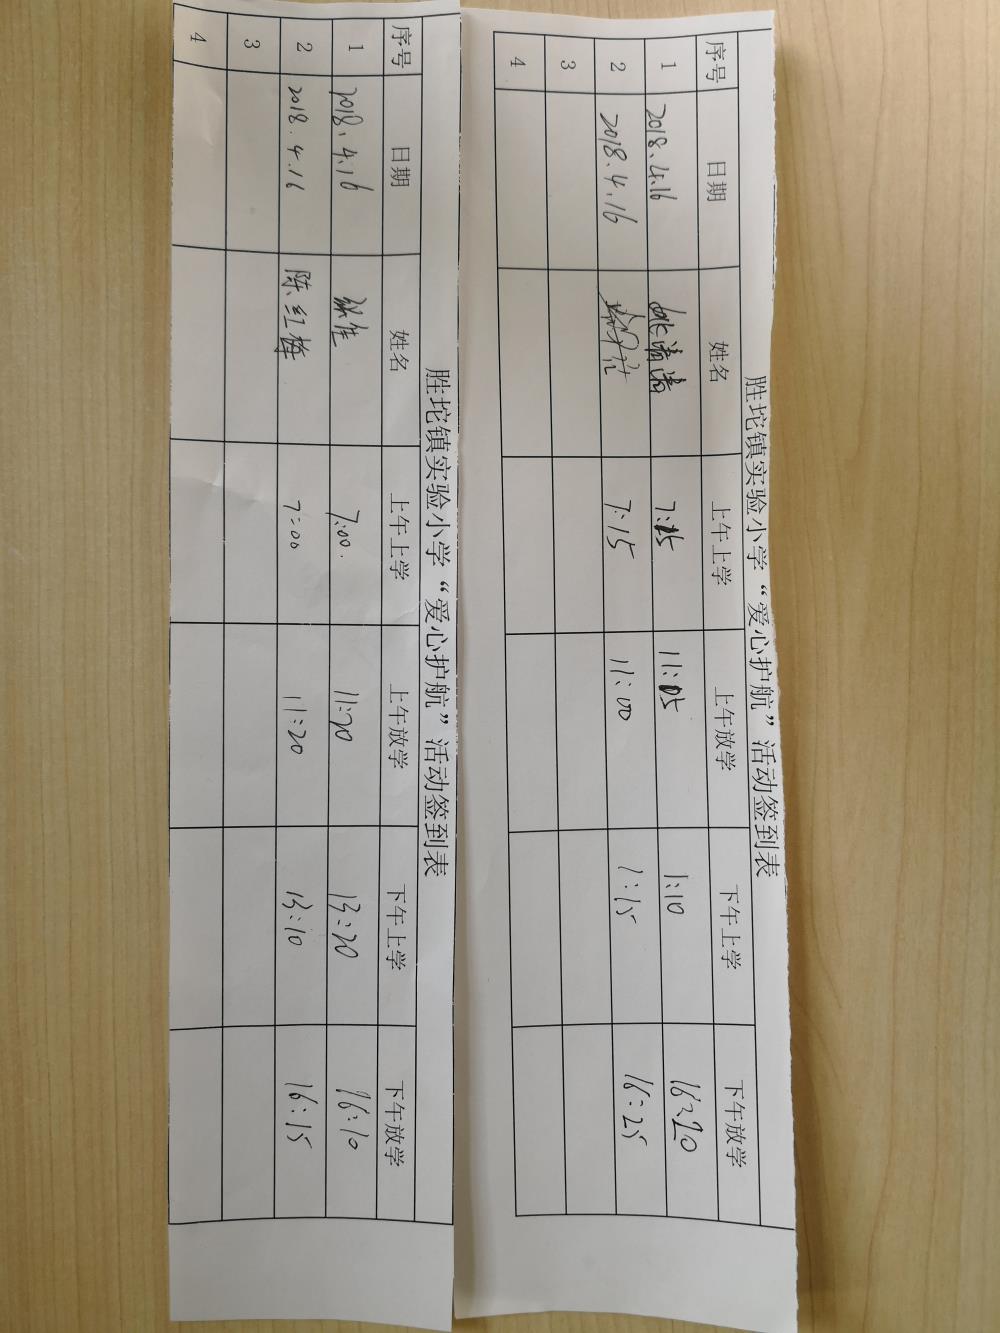 胜坨镇实验小学“爱心护航”活动签到表
序号 日期 姓名 上午上学 上午放学 下午上学 下午放学
1 2018.4.16 7:15 11:05 1:10 16:20
2 2018.4.16 7:15 11:00 1:15 16:25
3
4
胜坨镇实验小学“爱心护航”活动签到表
序号 日期 姓名 上午上学 上午放学 下午上学 下午放学
1 2018.4.16 7:00. 11:20 13:20 16:10
2 2018.4.16 陈红梅 7:00 11:20 13:10 16:15
3
4